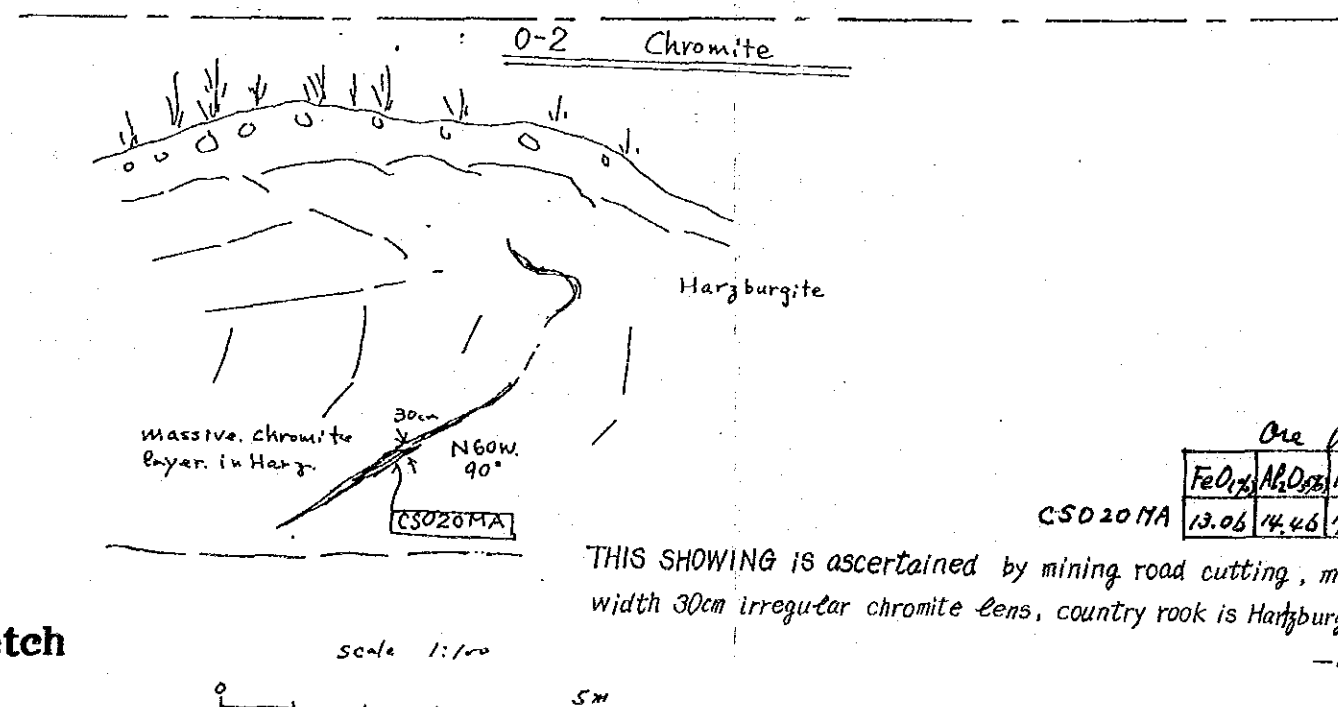 O-2 Chromite
Harzburgite
30cm
massive. chromite
layer. in Harz.
N60W.
90°
CSO20MA
Ore
FeO(%) Al₂O₃%
CSO20MA 13.06 14.46
THIS SHOWING is ascertained by mining road cutting, m
width 30cm irregular chromite lens, country rook is Hartzburg
etch
scale 1:100
0 5m